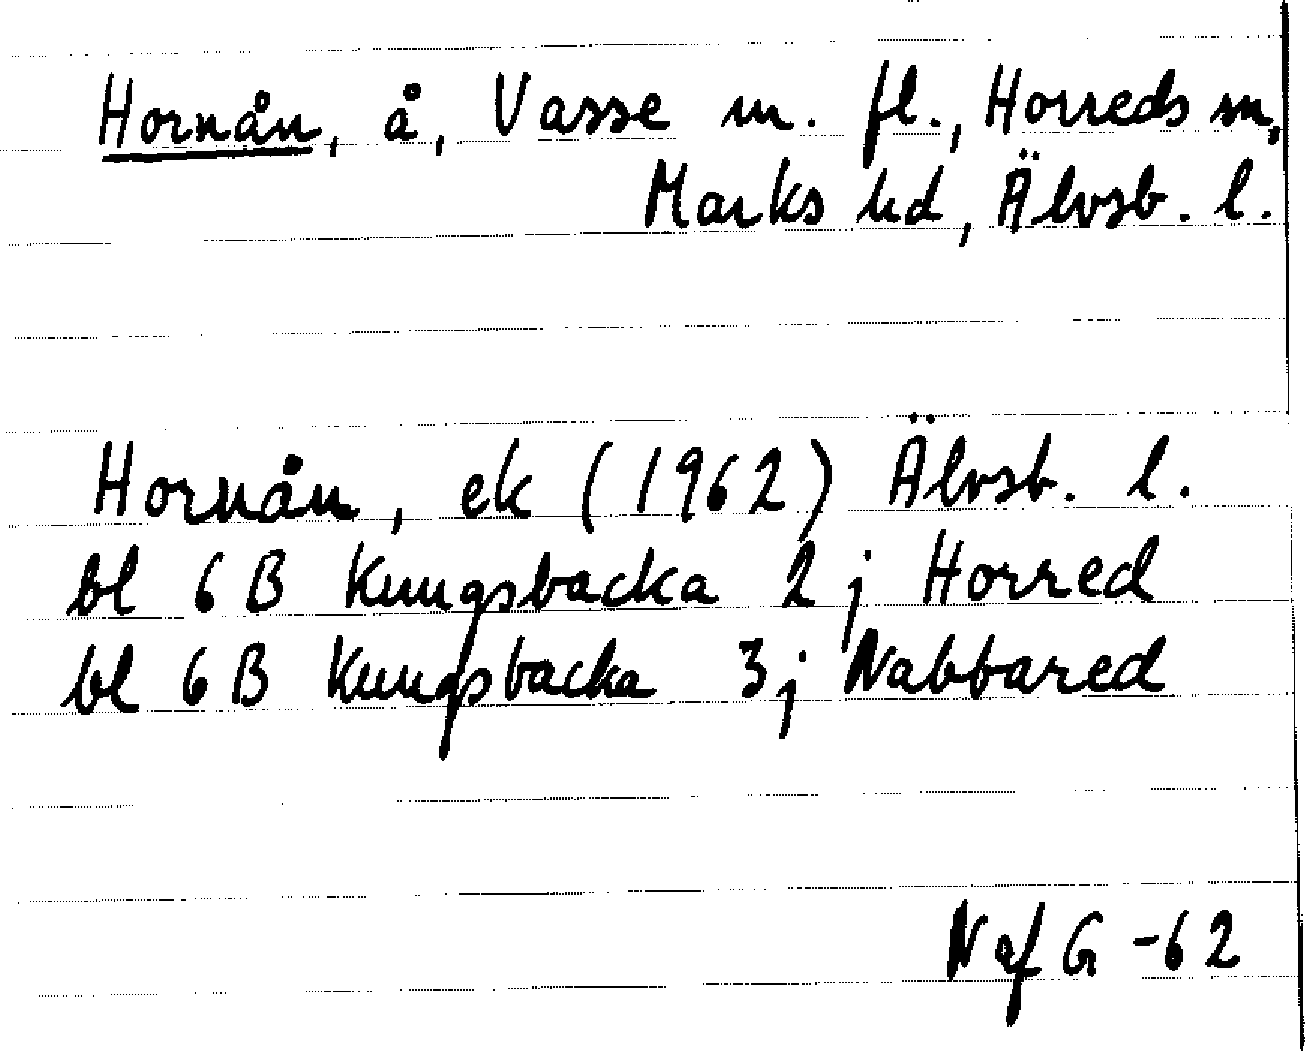 Hornån, å, Vasse m. fl., Horreds sn,
Marks hd, Älvsb. l.
Hornån, ek (1962) Älvsb. l.
bl 6 B Kungsbacka 2 j Horred
bl 6 B Kungsbacka 3 j Nabbared
N af G -62